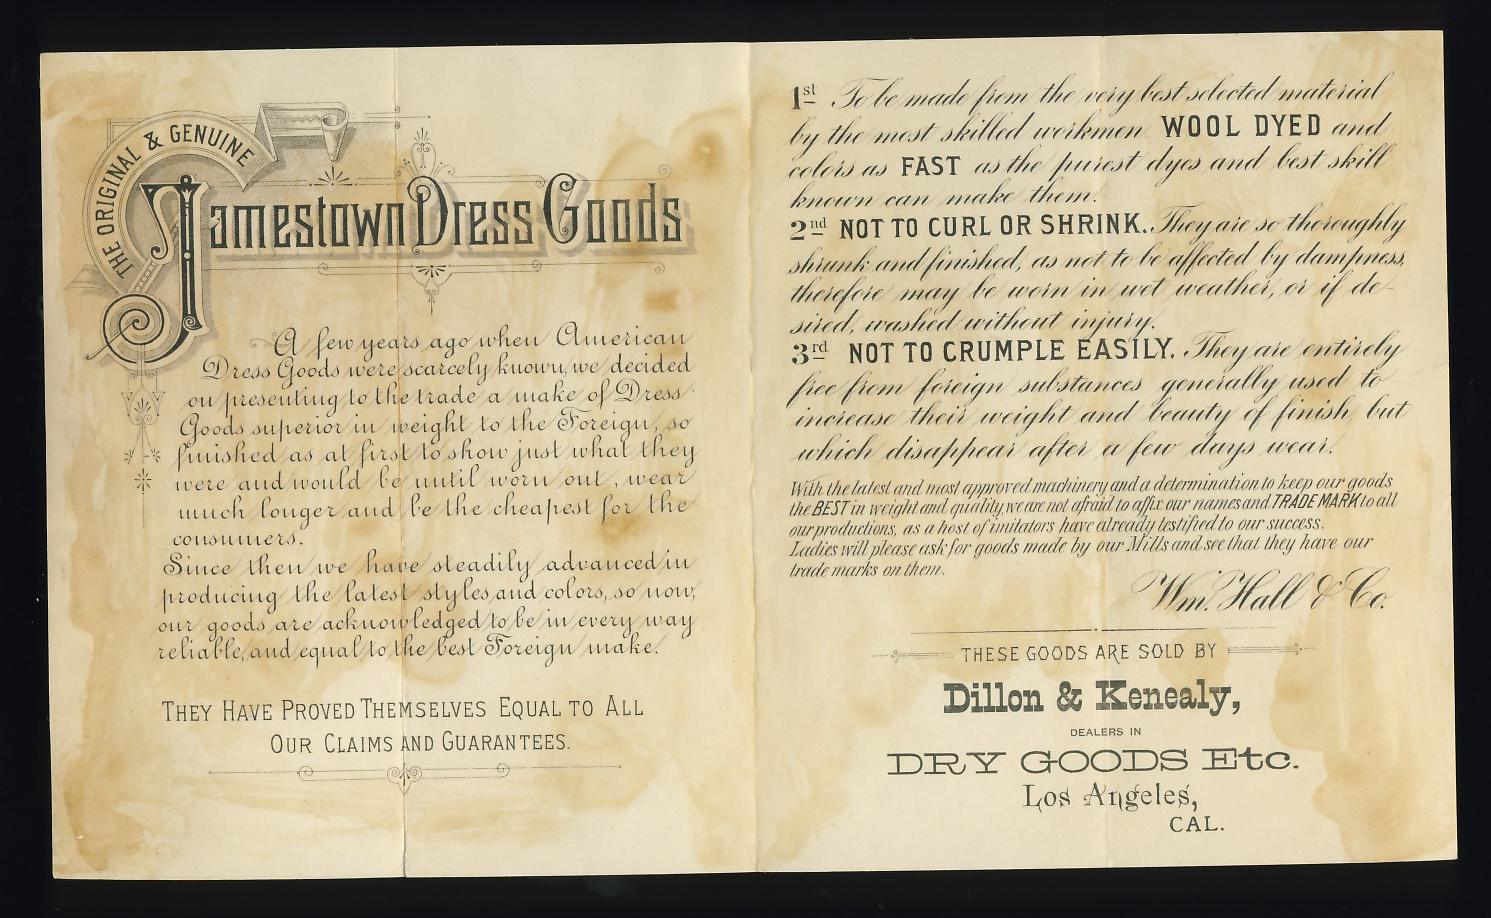 THE ORIGINAL & GENUINE
Jamestown Dress Goods
A few years ago when American
Dress Goods were scarcely known, we decided
on presenting to the trade a make of Dress
Goods superior in weight to the Foreign, so
finished as at first to show just what they
were and would be until worn out, wear
much longer and be the cheapest for the
consumers.
Since then we have steadily advanced in
producing the latest styles and colors, so now,
our goods are acknowledged to be in every way
reliable, and equal to the best Foreign make.
THEY HAVE PROVED THEMSELVES EQUAL TO ALL
OUR CLAIMS AND GUARANTEES.
1st To be made from the very best selected material
by the most skilled workmen WOOL DYED and
colors as FAST as the purest dyes and best skill
known can make them.
2nd NOT TO CURL OR SHRINK. They are so thoroughly
shrunk and finished, as not to be affected by dampness,
therefore may be worn in wet weather, or if de-
sired, washed without injury.
3rd NOT TO CRUMPLE EASILY. They are entirely
free from foreign substances generally used to
increase their weight and beauty of finish, but
which disappear after a few days wear.
With the latest and most approved machinery and a determination to keep our goods
the BEST in weight and quality, we are not afraid to affix our names and TRADE MARK to all
our productions, as a host of imitators have already testified to our success.
Ladies will please ask for goods made by our Mills and see that they have our
trade marks on them.
Wm. Hall & Co.
THESE GOODS ARE SOLD BY
Dillon & Kenealy,
DEALERS IN
DRY GOODS Etc.
Los Angeles,
CAL.